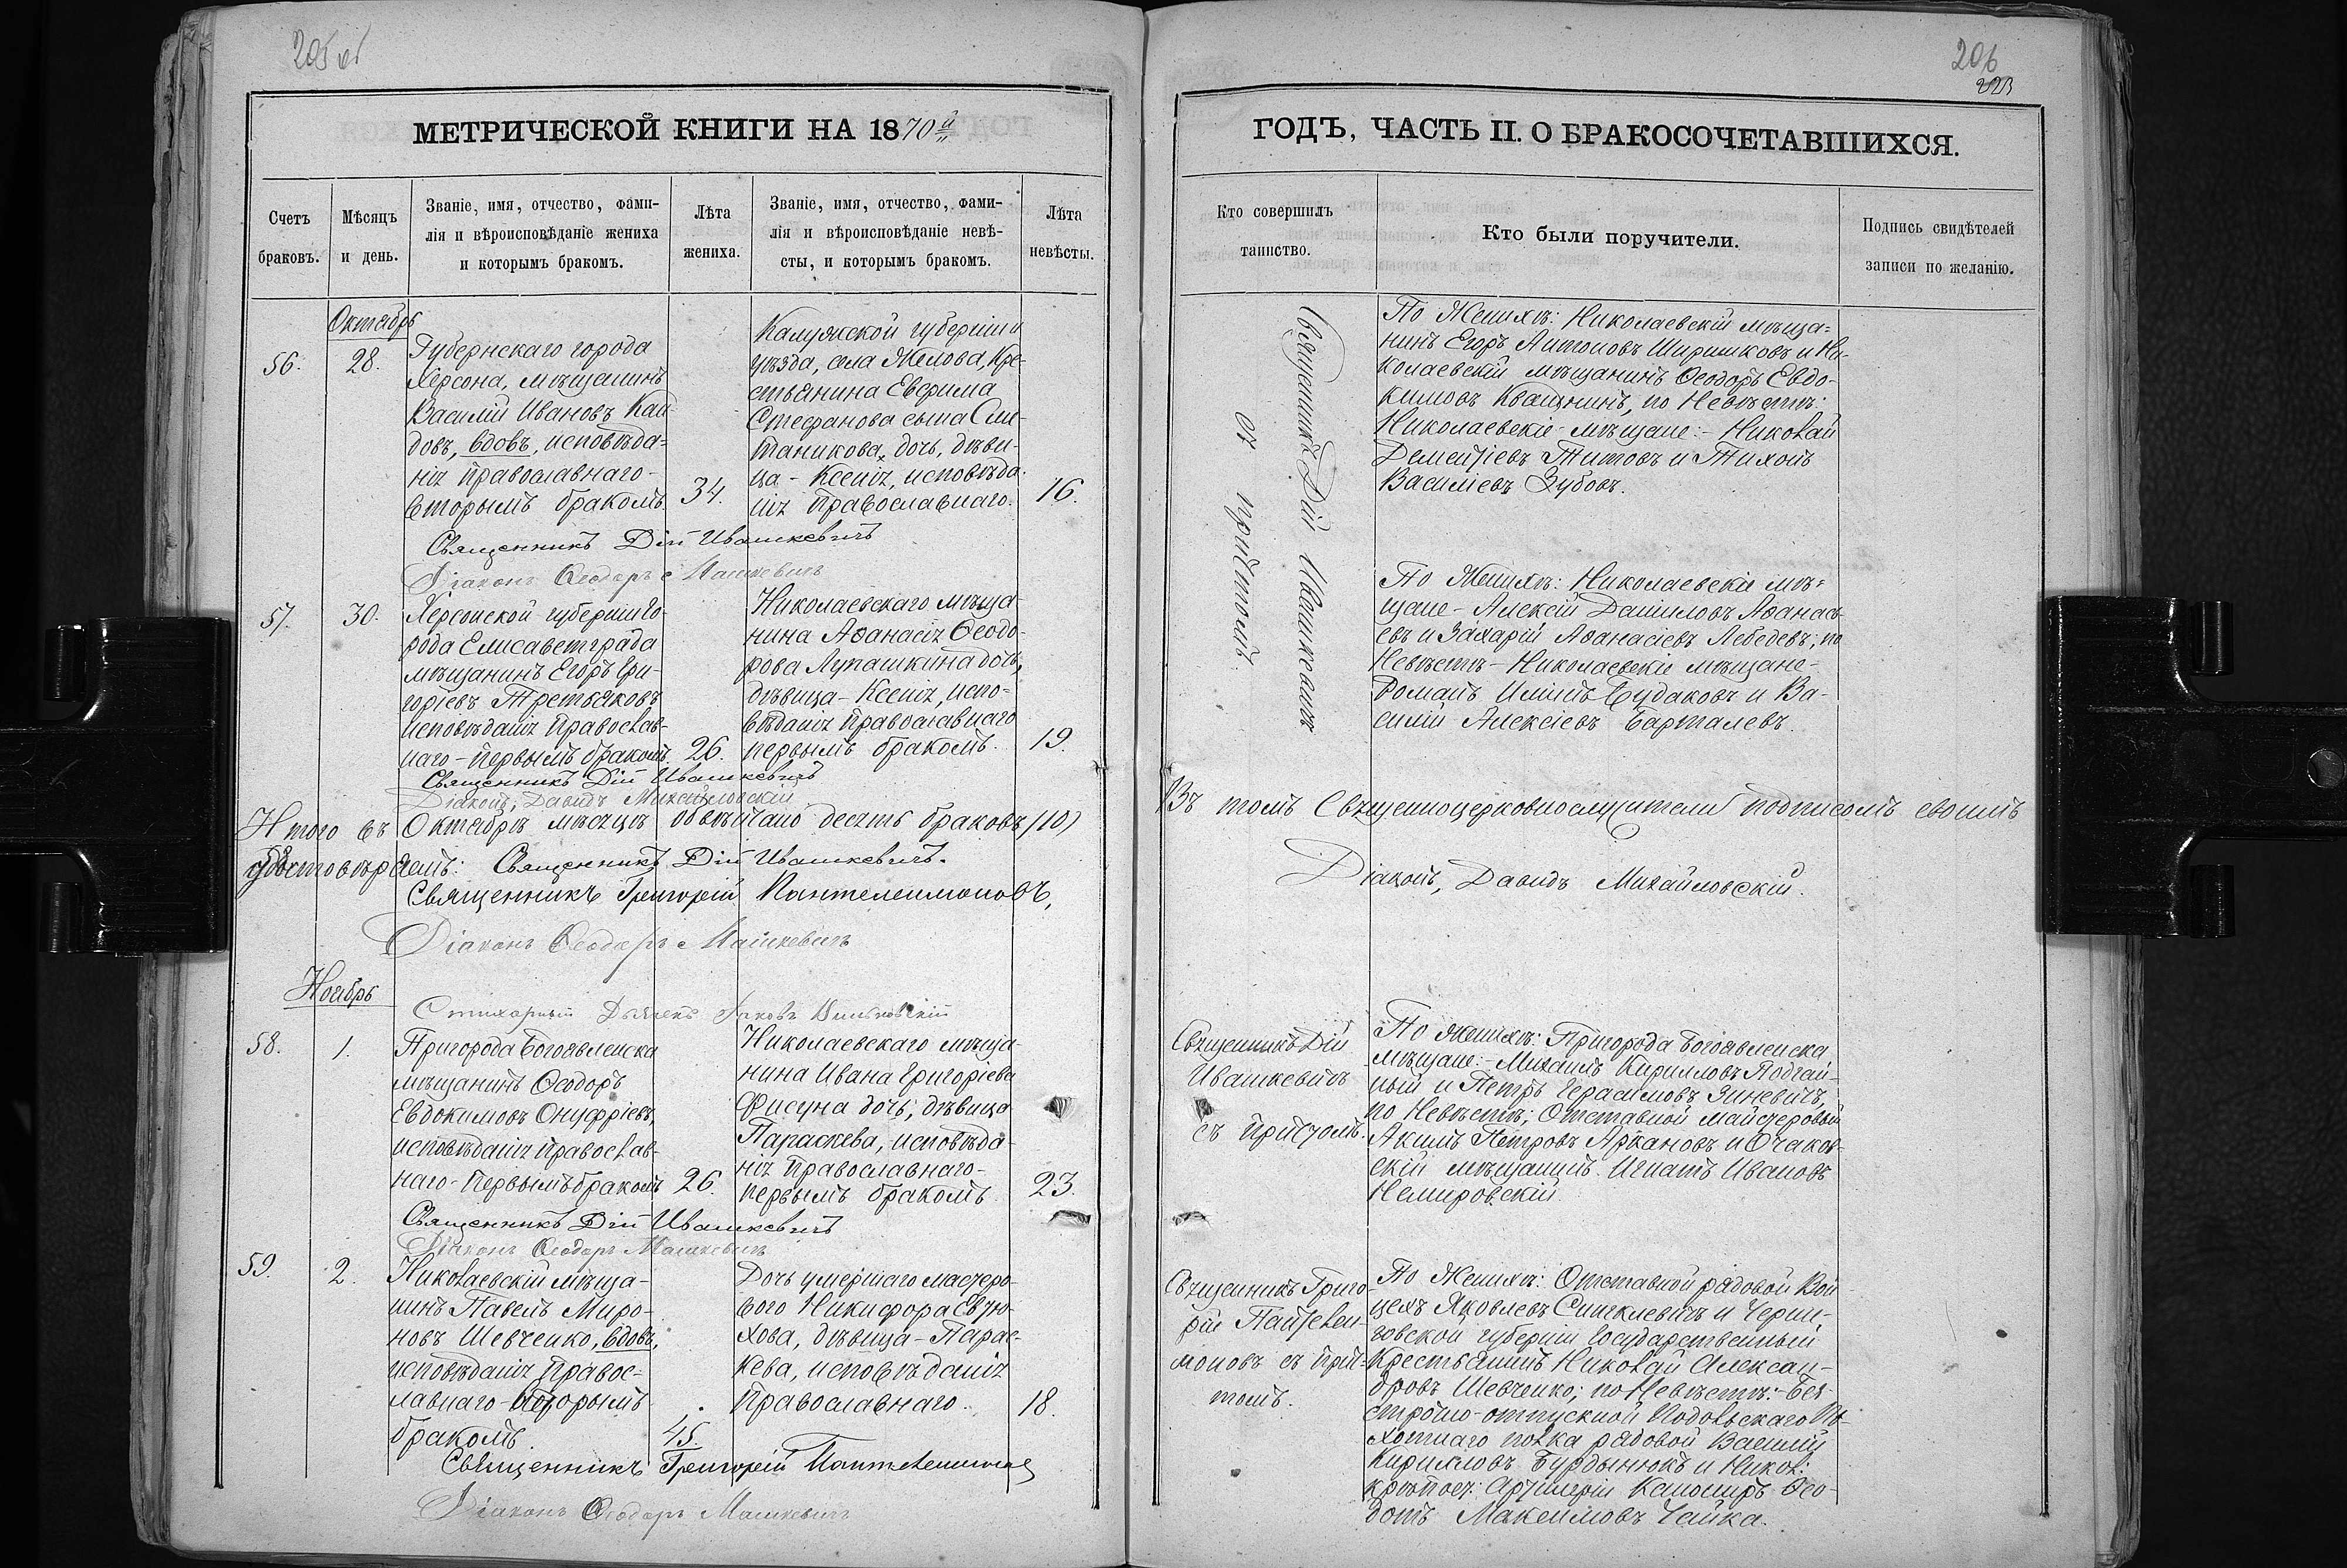 205 об
МЕТРИЧЕСКОЙ КНИГИ НА 1870й
Счетъ
браковъ.
Мѣсяцъ
и день.
Званіе, имя, отчество, фами-
лія и вѣроисповѣданіе жениха
и которымъ бракомъ.
Лѣта
жениха.
Званіе, имя, отчество, фами-
лія и вѣроисповѣданіе невѣ-
сты, и которымъ бракомъ.
Лѣта
невѣсты.
Октябрь
56.
28.
Губернскаго города
Херсона, мѣщанинъ
Василій Ивановъ Кай-
довъ, вдовъ, исповѣда-
нія православнаго-
вторымъ бракомъ.
34.
Калужской губерніи и
уѣзда, села Желова, Кре-
стьянина Евфима
Стефанова сына
дочь, дѣви-
ца - Ксенія, исповѣда-
нія православнаго.
16.
Священникъ Дій Ивашкевичъ
Діаконъ Ѳеодоръ Машкевичъ
57.
30.
Херсонской губерніи го-
рода Елисаветграда
мѣщанинъ Егоръ Гри-
горіевъ Третьяковъ
исповѣданія православ-
наго - первымъ бракомъ.
26.
Николаевскаго мѣща-
нина Аѳанасія Ѳеодо-
рова Лупашкина дочь,
дѣвица - Ксенія, испо-
вѣданія православнаго
первымъ бракомъ.
19.
Священникъ Дій Ивашкевичъ
Діаконъ, Давидъ Михайловскій
Итого въ Октябрѣ мѣсяцѣ обвѣнчано десять браковъ (10)
удостовѣряемъ: Священникъ Дій Ивашкевичъ.
Священникъ Григорій Пантелеимоновъ,
Діаконъ Ѳеодоръ Машкевичъ
Ноябрь
Стихарный Дьячекъ Яковъ
58.
1.
Пригорода Богоявленска
мѣщанинъ Ѳеодоръ
Евдокимовъ Онуфріевъ,
исповѣданія православ-
наго - первымъ бракомъ
26.
Николаевскаго мѣща-
нина Ивана Григоріева
Фисуна дочь, дѣвица
Параскева, исповѣда-
нія православнаго-
первымъ бракомъ
23.
Священникъ Дій Ивашкевичъ
Діаконъ Ѳеодоръ Машкевичъ
59.
2.
Николаевскій мѣща-
нинъ Павелъ Миро-
новъ Шевченко, вдовъ,
исповѣданія правос-
лавнаго - вторымъ
бракомъ.
45.
Дочь умершаго мастеро-
вого Никифора Евтю-
хова, дѣвица - Парас-
кева, исповѣданія
православнаго.
18.
Священникъ Григорій Пантелеимоновъ
Діаконъ Ѳеодоръ Машкевичъ
206
ГОДЪ, ЧАСТЬ II. О БРАКОСОЧЕТАВШИХСЯ.
Кто совершилъ
таинство.
Кто были поручители.
Подпись свидѣтелей
записи по желанію.
Священникъ Дій Ивашкевичъ
съ причтомъ.
По Женихѣ: Николаевскій мѣща-
нинъ Егоръ Антоновъ Ширшиковъ и Ни-
колаевскій мѣщанинъ Ѳеодоръ Евдо-
кимовъ Квашнинъ, по Невѣстѣ:
Николаевскіе мѣщане: - Николай
Дементіевъ Титовъ и Тихонъ
Василіевъ Зубовъ.
По Женихѣ: Николаевскіе мѣ-
щане - Алексій Даниловъ Аѳанась-
евъ и Захарій Аѳанасіевъ Лебедевъ; по
Невѣстѣ - Николаевскіе мѣщане-
Романъ Ильинъ Будаковъ и Ва-
силій Алексіевъ Барталевъ.
Въ томъ Священноцерковнослужители подписомъ своимъ
Діаконъ, Давидъ Михайловскій.
Священникъ Дій
Ивашкевичъ
съ причтомъ.
По женихѣ: Пригорода Богоявленска
мѣщане: - Михаилъ Кирилловъ Подчай-
ный и Петръ Герасимовъ Зиневичъ,
по Невѣстѣ; Отставной мастеровый
Акимъ Петровъ Аркановъ и Очаков-
скій мѣщанинъ Игнатъ Ивановъ
Немировскій.
Священникъ Григо-
рій Пантелеи-
моновъ съ прич-
томъ.
По Женихѣ: Отставной рядовой Вой-
цехъ Яковлевъ Синкевичъ и Черни-
говской губерніи Государственный
Крестьянинъ Николай Алексан-
дровъ Шевченко; по Невѣстѣ: - Без-
строчно-отпускной Подольскаго Пѣ-
хотнаго полка рядовой Василій
Кирилловъ Бурдынюкъ и Никол:
крѣпост: Артиллеріи Канониръ Ѳео-
дотъ Максимовъ Чайка.